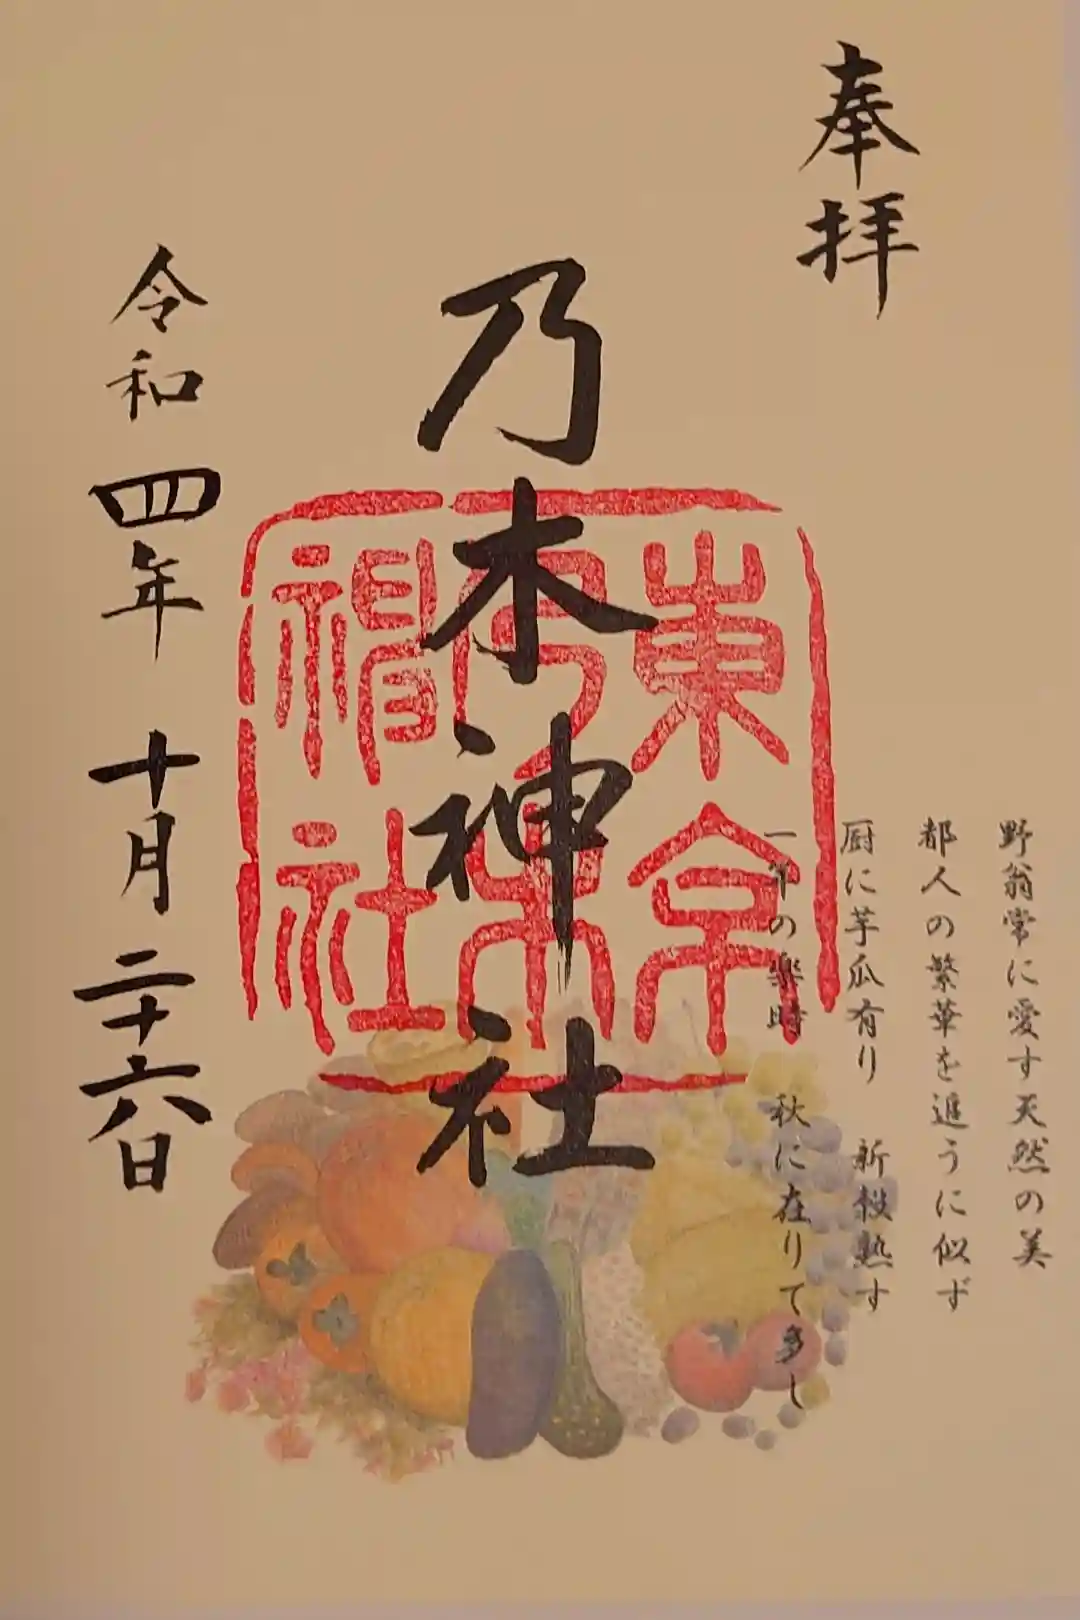 奉拝
野翁常に愛す天然の美
都人の繁華を追うに似ず
厨に芋瓜有り 新穀熟す
一年の楽時 秋に在りて多し
乃木神社
東京
乃木
神社
令和四年 十月 二十六日